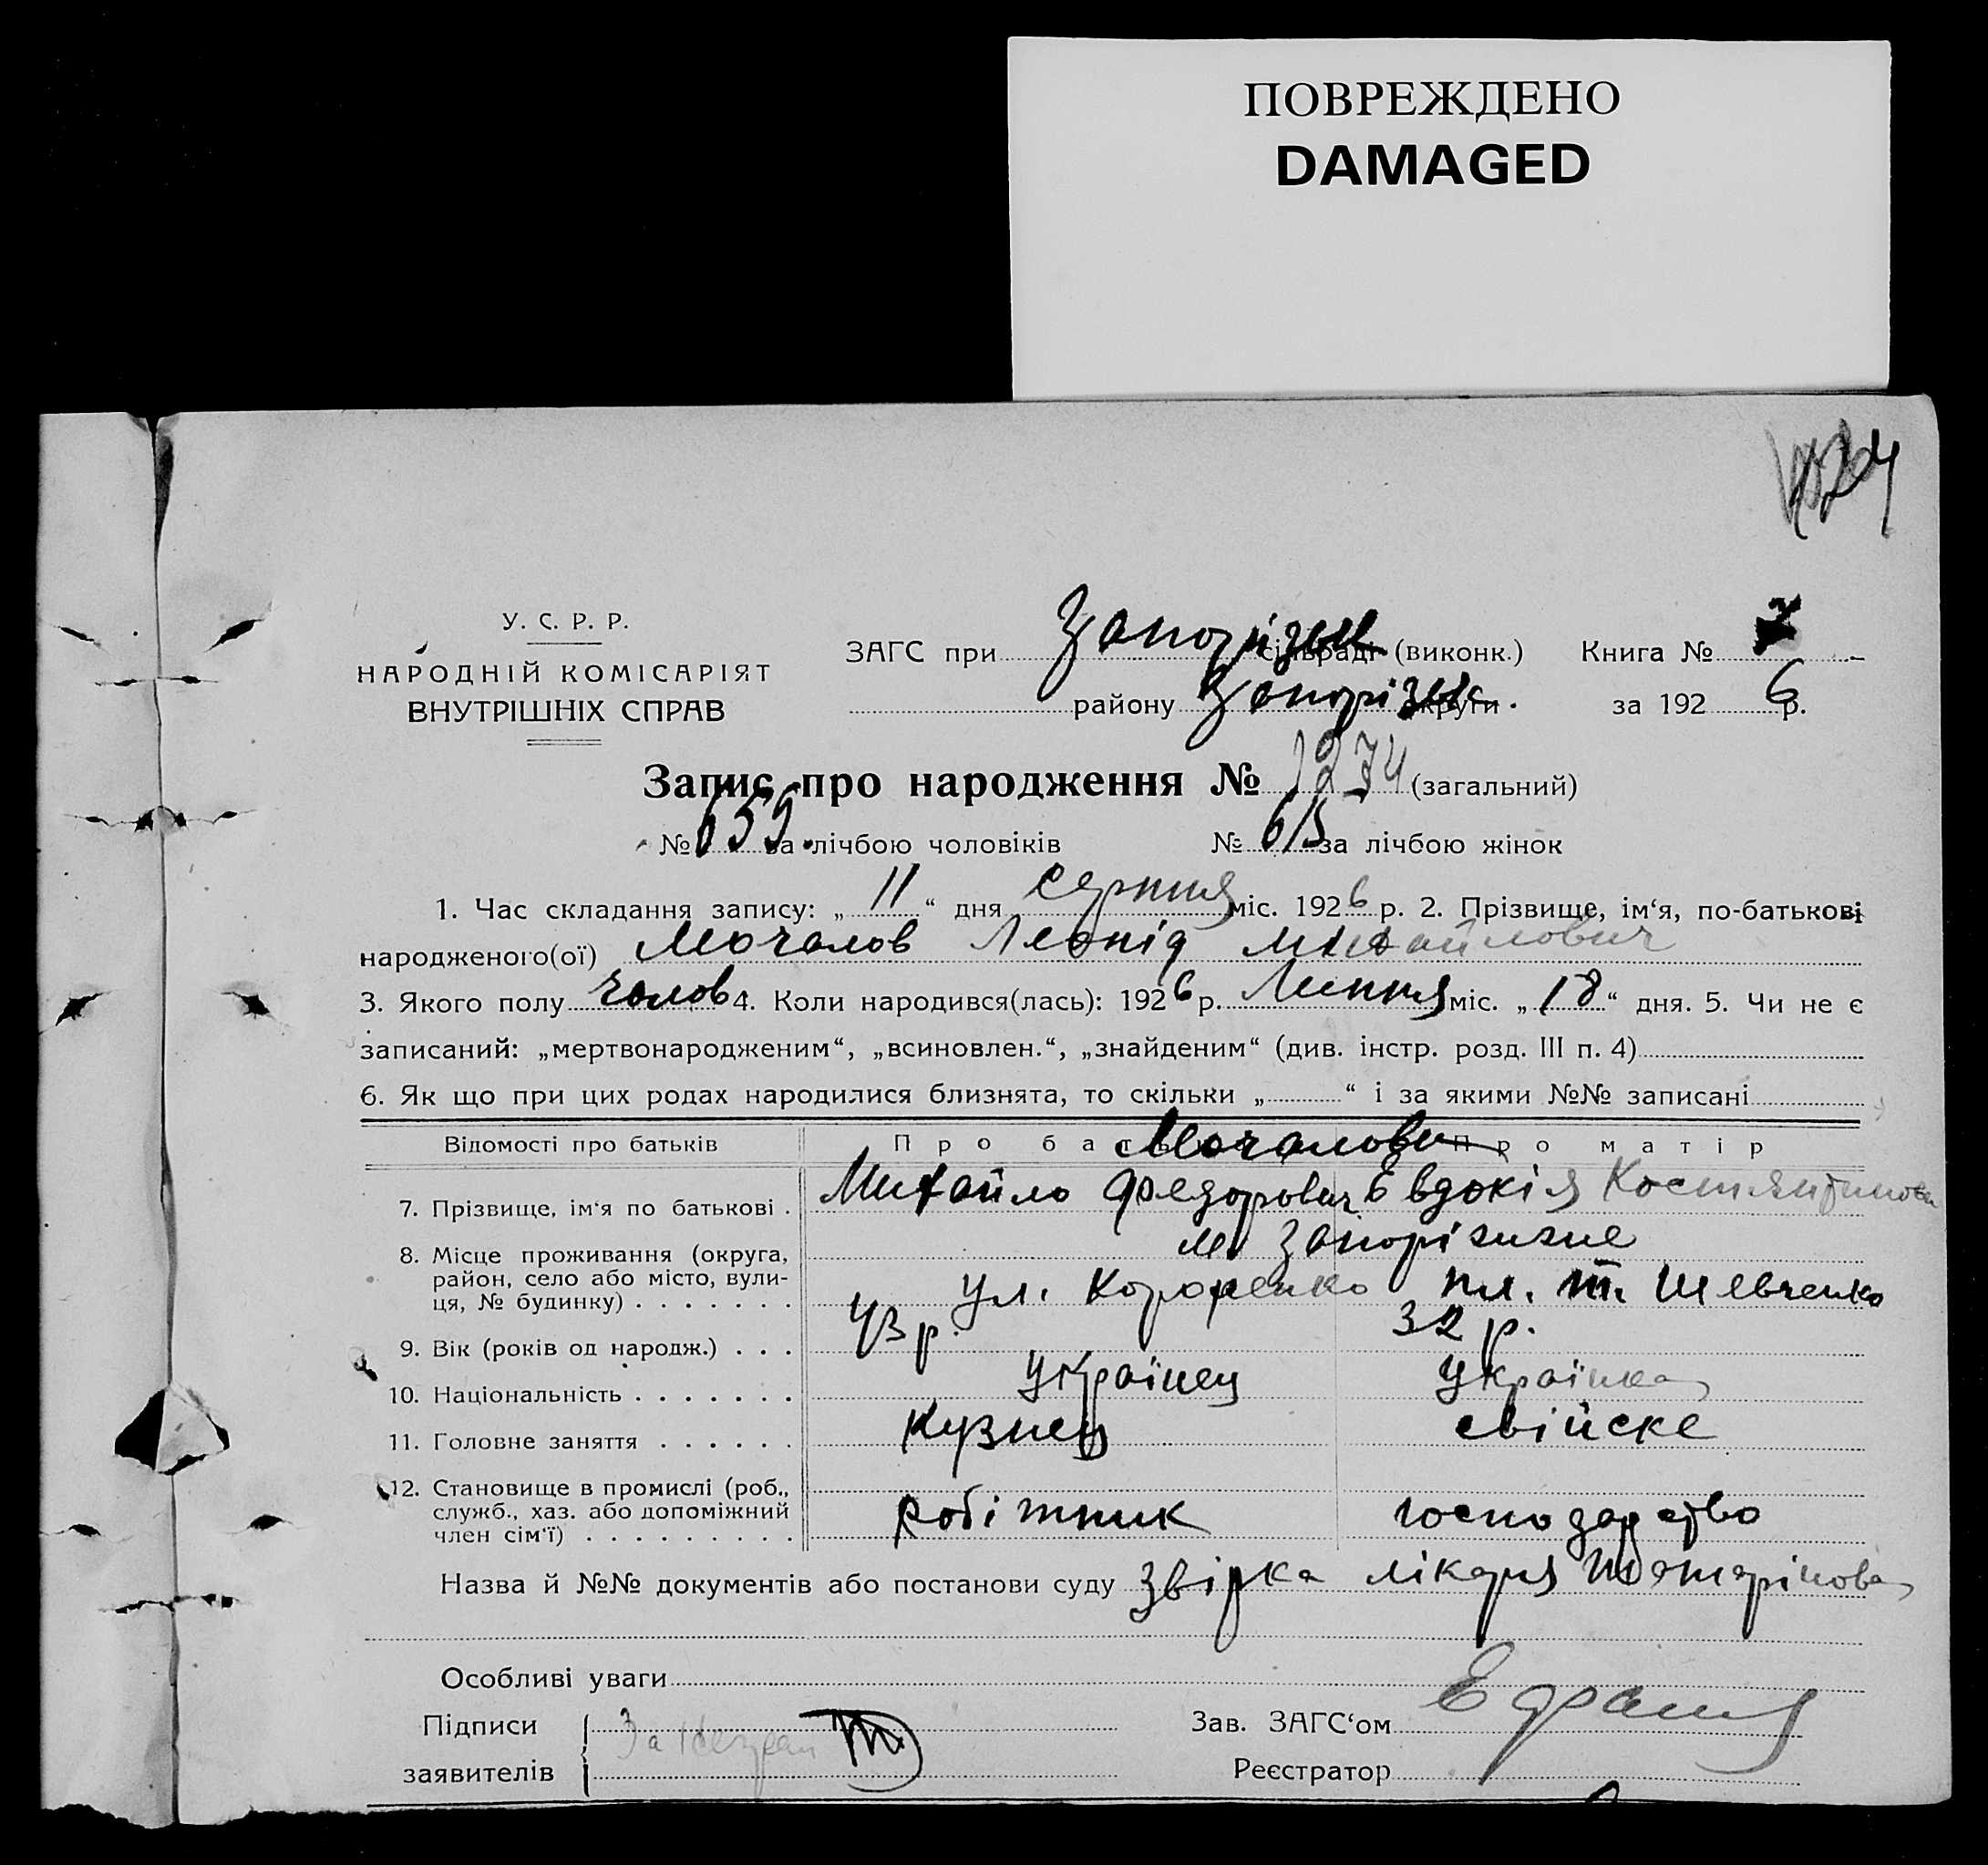 ПОВРЕЖДЕНО
DAMAGED
У. С. Р. Р.
НАРОДНІЙ КОМІСАРІЯТ
ВНУТРІШНІХ СПРАВ
ЗАГС при Запорізьк сільраді (виконк.) Книга № 7
району Запорізьк округи за 1926 р.
Запис про народження № 1274 (загальний)
№ 659 за лічбою чоловіків № 615 за лічбою жінок
1. Час складання запису: „ 11 “ дня серпня міс. 1926 р. 2. Прізвище, ім‘я, по-батькові
народженого(ої) Мочалов Леонід Михайлович
3. Якого полу чолов 4. Коли народився(лась): 1926 р. Липня міс. „ 18 “ дня. 5. Чи не є
записаний: „мертвонародженим“, „всиновлен.“, „знайденим“ (див. інстр. розд. III п. 4)
6. Як що при цих родах народилися близнята, то скільки „ “ і за якими №№ записані
Відомості про батьків Про батька Мочалови Про матір
7. Прізвище, ім‘я по батькові . Михайло Федорович Евдокія Костянтинова
8. Місце проживання (округа, м Запоріжжє
район, село або місто, вули-
ця, № будинку) . . . . . . . ул. Короленко пл. т. Шевченко
9. Вік (років од народж.) . . . 43 р. 32 р.
10. Національність . . . . . . . Українец Українка
11. Головне заняття . . . . . . Кузнец свійске
12. Становище в промислі (роб.,
служб., хаз. або допоміжний
член сім‘ї) . . . . . . . . . робітник господарство
Назва й №№ документів або постанови суду звірка лікаря
Особливі уваги
Підписи
заявителів
Зав. ЗАГС‘ом
Реєстратор